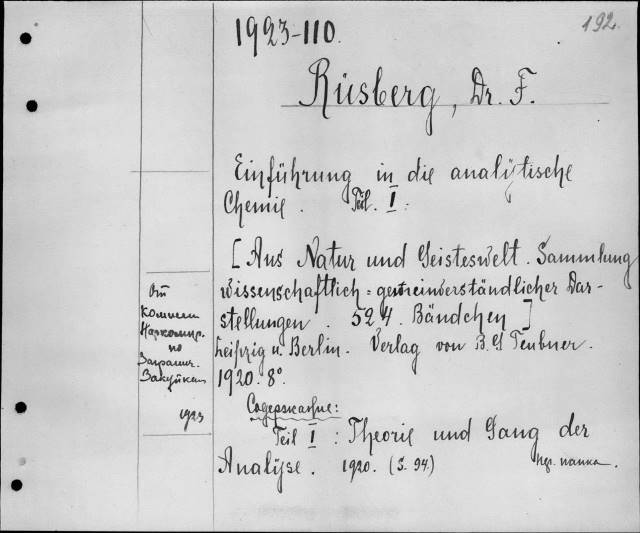 1923-110.
192.
Rüsberg, Dr. F.
Einführung in die analytische
Chemie. Teil. I:
[Aus Natur und Geisteswelt. Sammlung
wissenschaftlich=gemeinverständlicher Dar-
stellungen. 524. Bändchen]
Leipzig u. Berlin. Verlag von B. G Teubner.
1920. 8°.
Содержание:
Teil I: Theorie und Gang der
Analyse. 1920. (S. 94.) папка.
От
Комиссии
по
Загранич.
Закупкам
1923